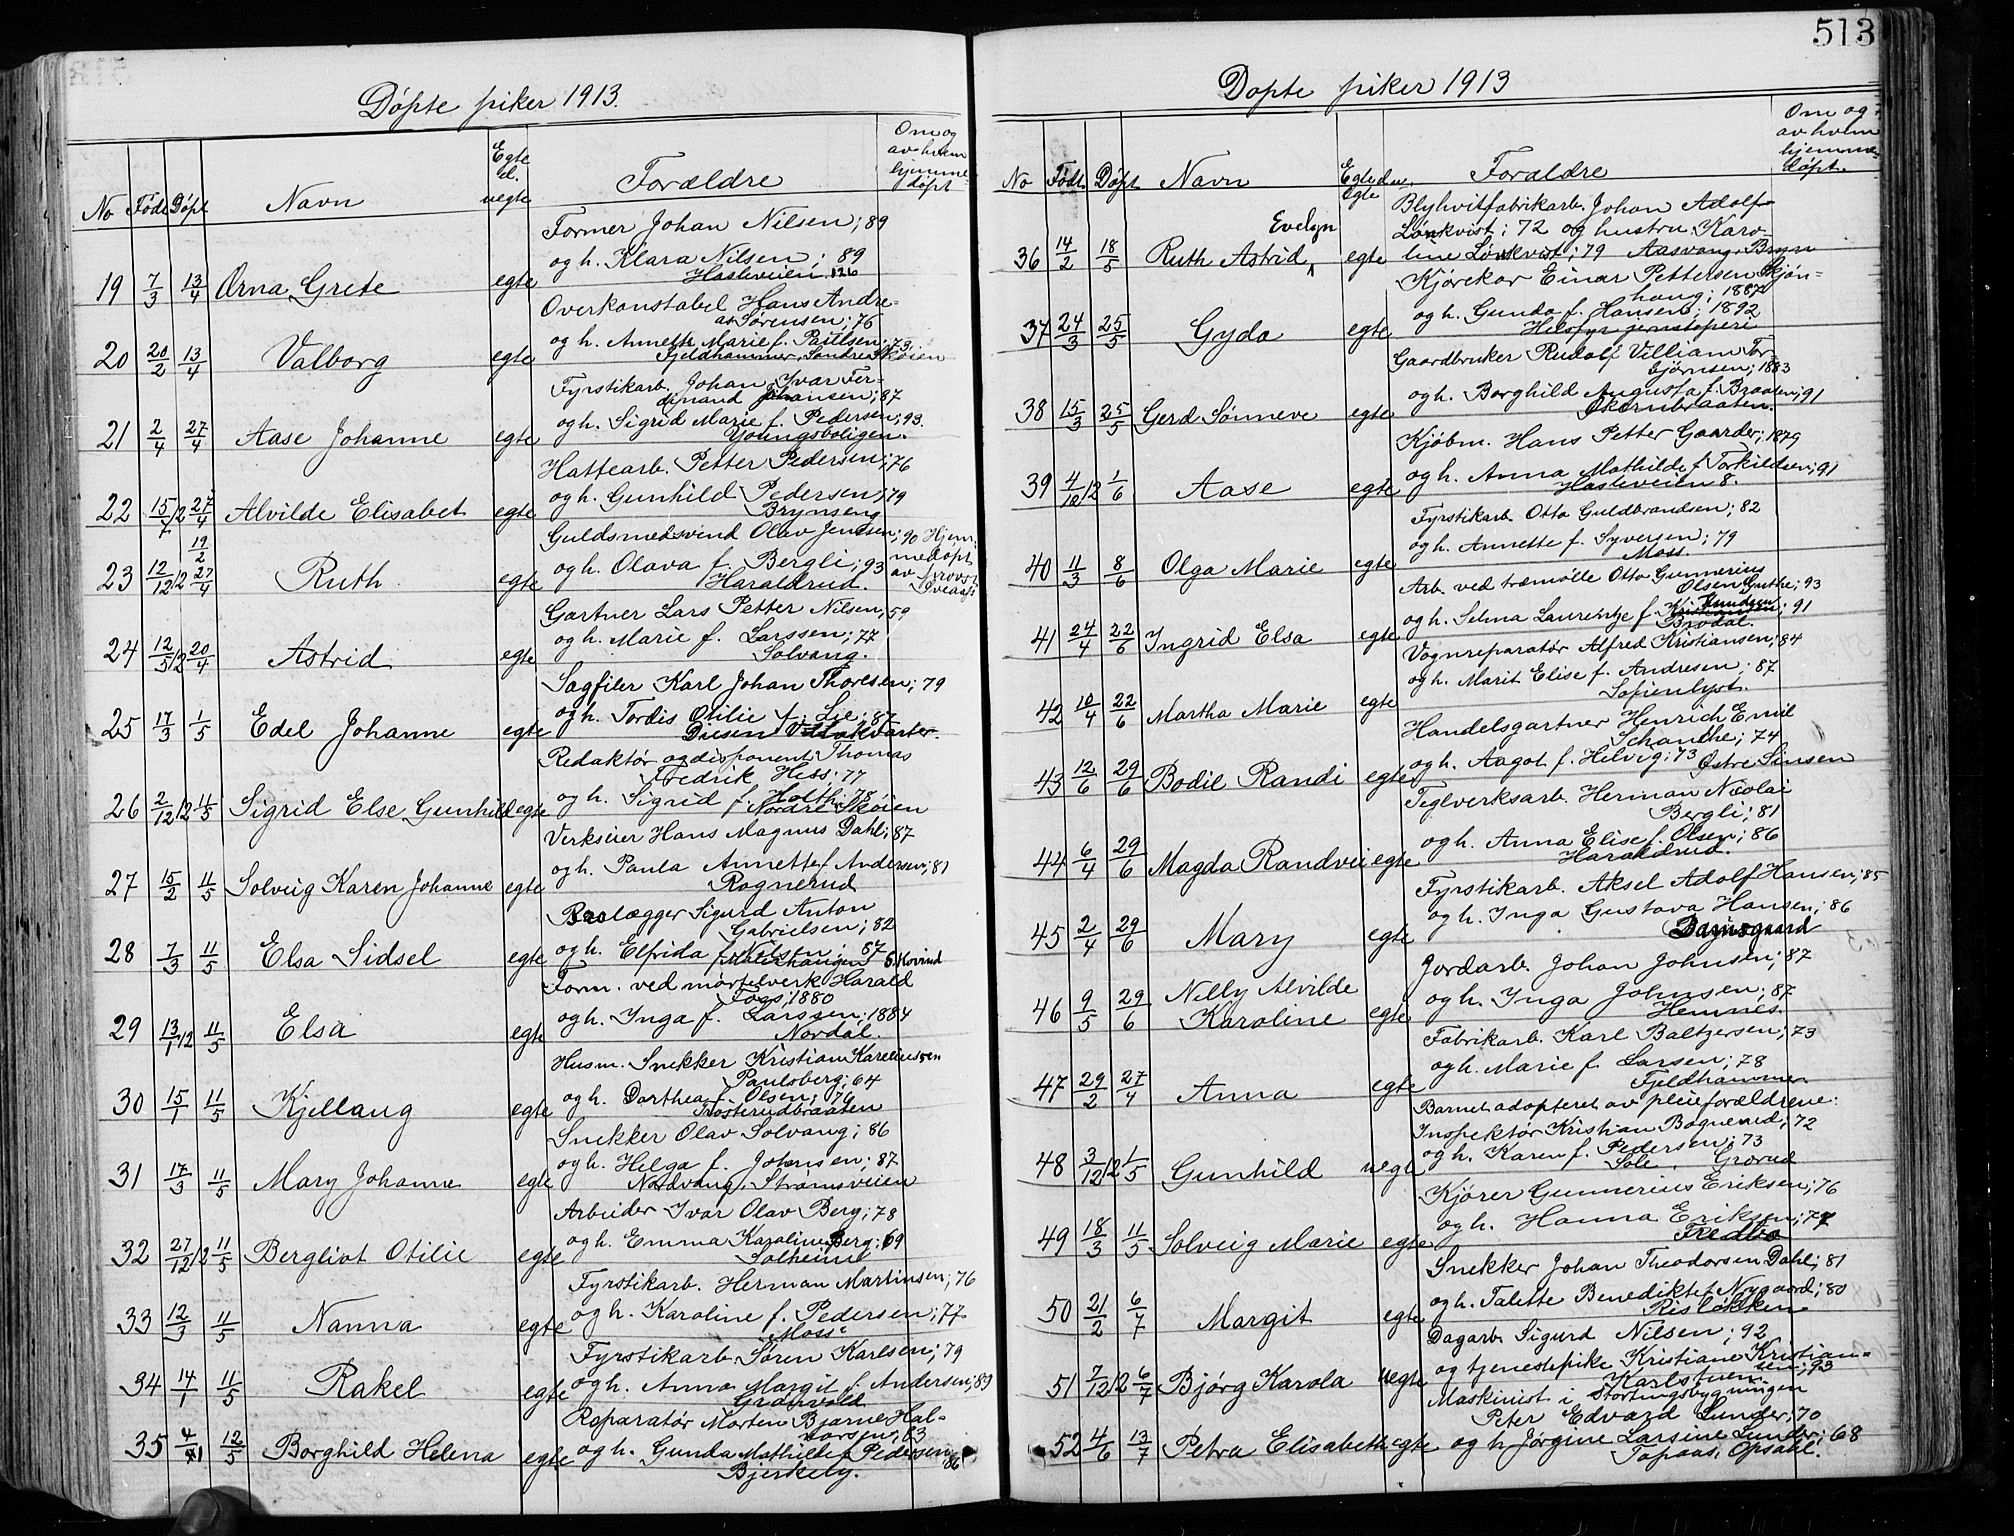 513
Døpte piker 1913.
No Født Døpt Navn Egte el. uegte Forældre Om og av hvem hjemme-døpt
Former Johan Nilsen; 89
og h. Klara Nilsen; 89
19 7/3 13/4 Orna Grete egte Hasleveien 126
Overkonstabel Hans Andre-
as Sørensen; 76
og h. Annette Marie f. Paulsen; 73
20 20/2 13/4 Valborg egte Fjeldhammer, Søndre Skøien
Fyrstikarb. Johan Ivar Fer-
dinand Johansen; 87
og h. Sigrid Marie f. Pedersen; 93.
21 2/4 27/4 Aase Johanne egte Youngsboligen.
Hattearb. Petter Pedersen; 76
og h. Gunhild Pedersen; 79
22 15/7 12 27/4 Alvilde Elisabet egte Brynseng
Guldsmedsvend Olav Jensen; 90 Hjem-
19/2 medøpt
og h. Olava f. Bergli; 93 av provst
23 12/12 12 27/4 Ruth. egte Haraldrud. Sveaas
Gartner Lars Petter Nilsen; 59
og h. Marie f. Larssen; 77
24 12/5 12 20/4 Astrid egte Solvang.
Sagfiler Karl Johan Thorlsen; 79
og h. Tordis Otilie f. Lie; 87
25 17/3 1/5 Edel Johanne egte Diesen Vollokvarter.
Redaktør og disponent Thomas
Fredrik Hess; 77
og h. Sigrid f. Holth; 78
26 2/12 12 11/5 Sigrid Else Gunhild egte Nordre Skøien
Verkseier Hans Magnus Dahl; 87
og h. Paula Annette f. Andersen; 81
27 15/2 11/5 Solveig Karen Johanne egte Rognerud
Brolægger Sigurd Anton
Gabrielsen; 82
og h. Elfrida f. Nelsen; 87
28 7/3 11/5 Elsa Sidsel egte Malerhaugen S. Hovind
Form. ved mørtelverk Harald
Foss; 1880
og h. Inga f. Larssen; 1884
29 13/1 12 11/5 Elsa egte Nordal.
Husm. Snekker Kristian Kareliussen
Paulsberg; 64
og h. Dorthea f. Olsen; 76
30 15/1 11/5 Kjellaug egte Trosterudbraaten
Snekker Olav Solvang; 86
og h. Helga f. Johnsen; 87
31 17/3 11/5 Mary Johanne egte Nordvang, Strømsveien
Arbeider Ivar Olav Berg; 78
og h. Emma Karoline Berg; 69
32 27/12 12 11/5 Bergliot Otilie egte Solheim
Fyrstikarb. Herman Martinsen; 76
og h. Karoline f. Pedersen; 77
33 12/3 11/5 Nanna egte Moss.
Fyrstikarb. Søren Karlsen; 79
og h. Anna Margit f. Andersen; 89
34 14/1 11/5 Rakel egte Grønvold
Reparatør Morten Bjarne Hal-
vorsen; 83
35 4/4 11 12/5 Borghild Helena egte og h. Gunda Mathilde f. Pedersen; 86
Bjerkely.
Døpte piker 1913
No Født Døpt Navn Egte el. u. Egte Forældre Om og av hvem hjemme-døpt.
Blyhvitfabrikarb. Johan Adolf
Evelyn Lönkvist; 72 og hustru Karo-
36 14/2 18/5 Ruth Astrid egte line Lönkvist; 79 Aasvang. Bryn
Kjørekar Einar Pettersen Skjøn-
haug; 1887
og h. Gunda f. Hansen; 1892
37 24/3 25/5 Gyda egte Helsfyr jernstøperi
Gaardbruker Rudolf Villiam Tor-
bjørnsen; 1883
og h. Borghild Augusta f. Braaten; 91
38 15/3 25/5 Gerd Sønneve egte Økernbraaten.
Kjøbm. Hans Petter Gaarder; 1879
og h. Anna Mathilde f. Torkildsen; 91
39 4/10 12 1/6 Aase egte Hasleveien 8.
Fyrstikarb. Otto Guldbrandsen; 82
og h. Annette f. Syversen; 79
40 11/3 8/6 Olga Marie egte Moss.
Arb. ved træmølle Otto Gunnerius
Olsen Guthe; 93
og h. Selma Laurentze f. Knudsen; 91
41 24/4 22/6 Ingrid Elsa egte Brodal.
Vognreparatør Alfred Kristiansen; 84
og h. Marit Elise f. Andresen; 87
42 10/4 22/6 Martha Marie egte Sofienlyst.
Handelsgartner Henrich Emil
Schanche; 74
og h. Aagot f. Helvig; 73 Østre Sinsen
43 12/6 29/6 Bodil Randi egte
Teglverksarb. Herman Nicolai
Bergli; 81
og h. Anna Elise f. Olsen; 86
44 6/4 29/6 Magda Randvei egte Haraldrud.
Fyrstikarb. Aksel Adolf Hansen; 85
og h. Inga Gustava Hansen; 86
45 2/4 29/6 Mary egte Dagnsgaard
Jordarb. Johan Johnsen; 87
Nelly Alvilde og h. Inga Johnsen; 87
46 9/5 29/6 Karoline egte Hemnes.
Fabrikarb. Karl Baltzersen; 73
og h. Marie f. Larsen; 78
47 29/2 27/4 Anna egte Fjeldhammer
Barnet adopteret av pleieforældrene:
Inspektør Kristian Bognerud; 72
og h. Karen f. Pedersen; 73
48 3/12 12 1/5 Gunhild uegte Sole. Grorud
Kjører Gunnerius Eriksen; 76
og h. Hanna Eriksen; 77
49 18/3 11/5 Solveig Marie egte Fredbo
Snekker Johan Theodorsen Dahl; 81
og h. Talette Benedikte f. Nygaard; 80
50 21/2 6/7 Margit egte Risløkken
Dagarb. Sigurd Nilsen; 92
og tjenestepike Kristiane Kristian-
sen; 93
51 7/12 12 6/7 Bjørg Karola uegte Karlstuen
Maskinist i Stortingsbygningen
Peter Edvard Lunder; 70
52 4/6 13/7 Petra Elisabeth egte og h. Jørgine Larsine Lunder; 68
Topaas, Opsahl.